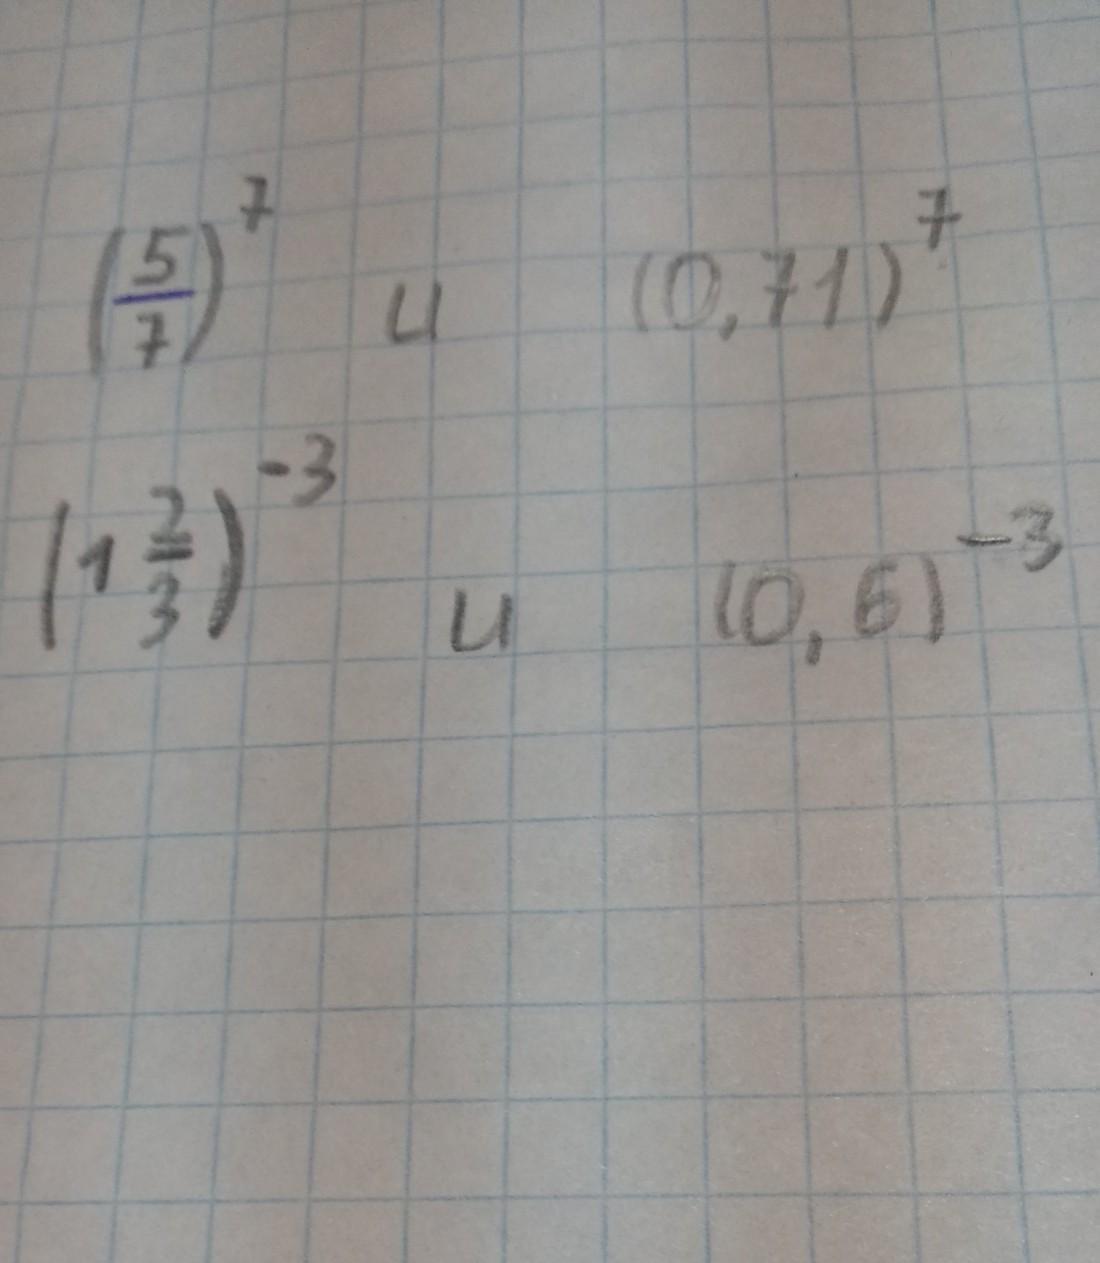 (5/7)^7 и (0,71)^7
(1 2/3)^-3 и (0,6)^-3